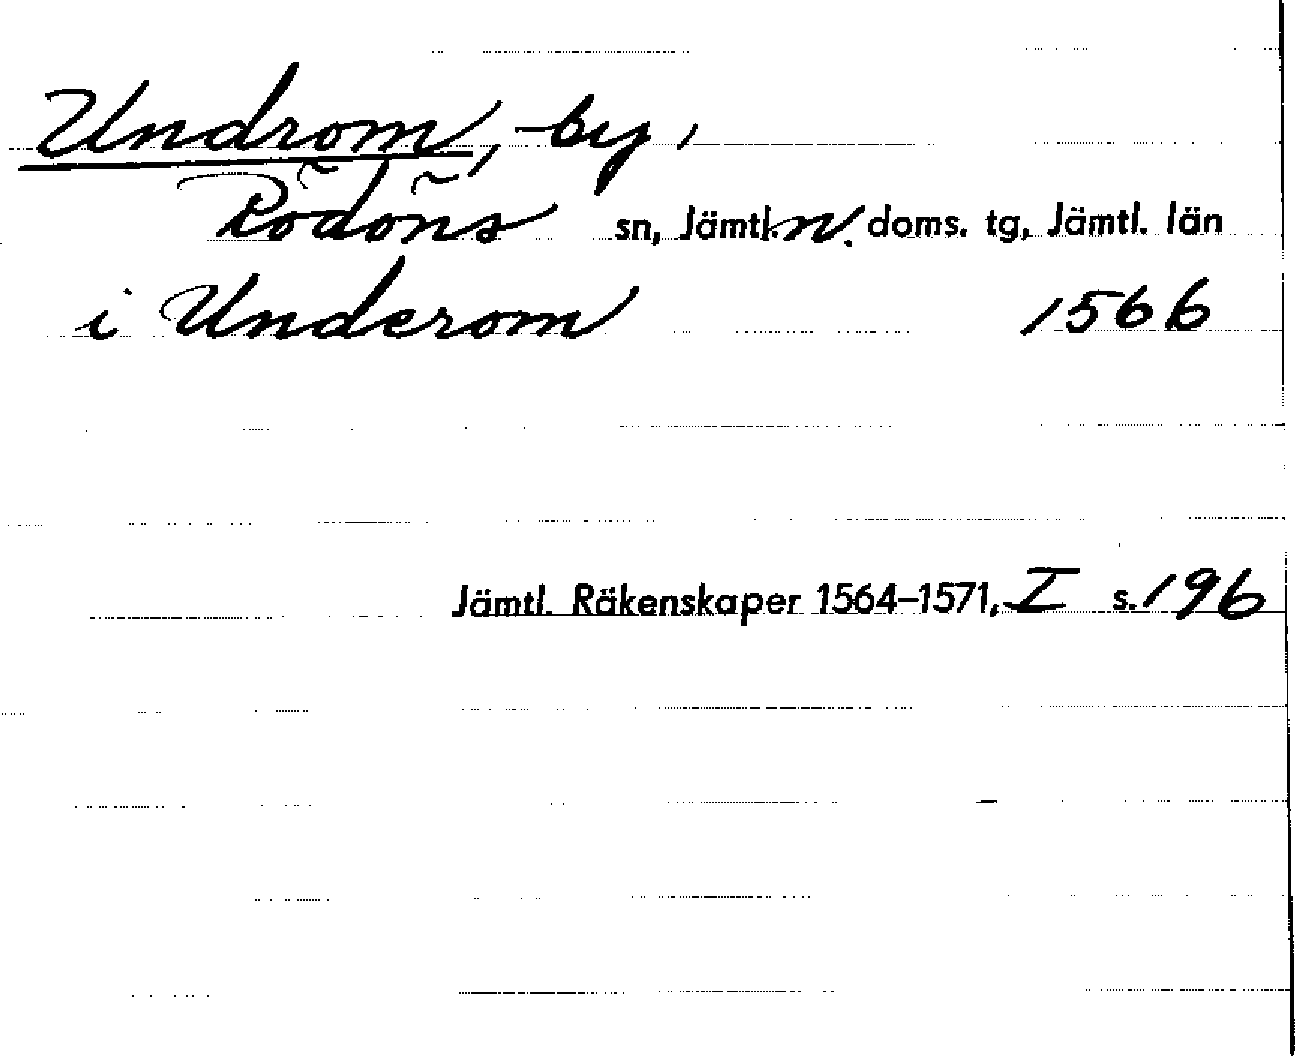 Undrom, by,
Rödöns sn, Jämtl. n. doms. tg, Jämtl. län
i Underom 1566
Jämtl. Räkenskaper 1564–1571, I s. 196